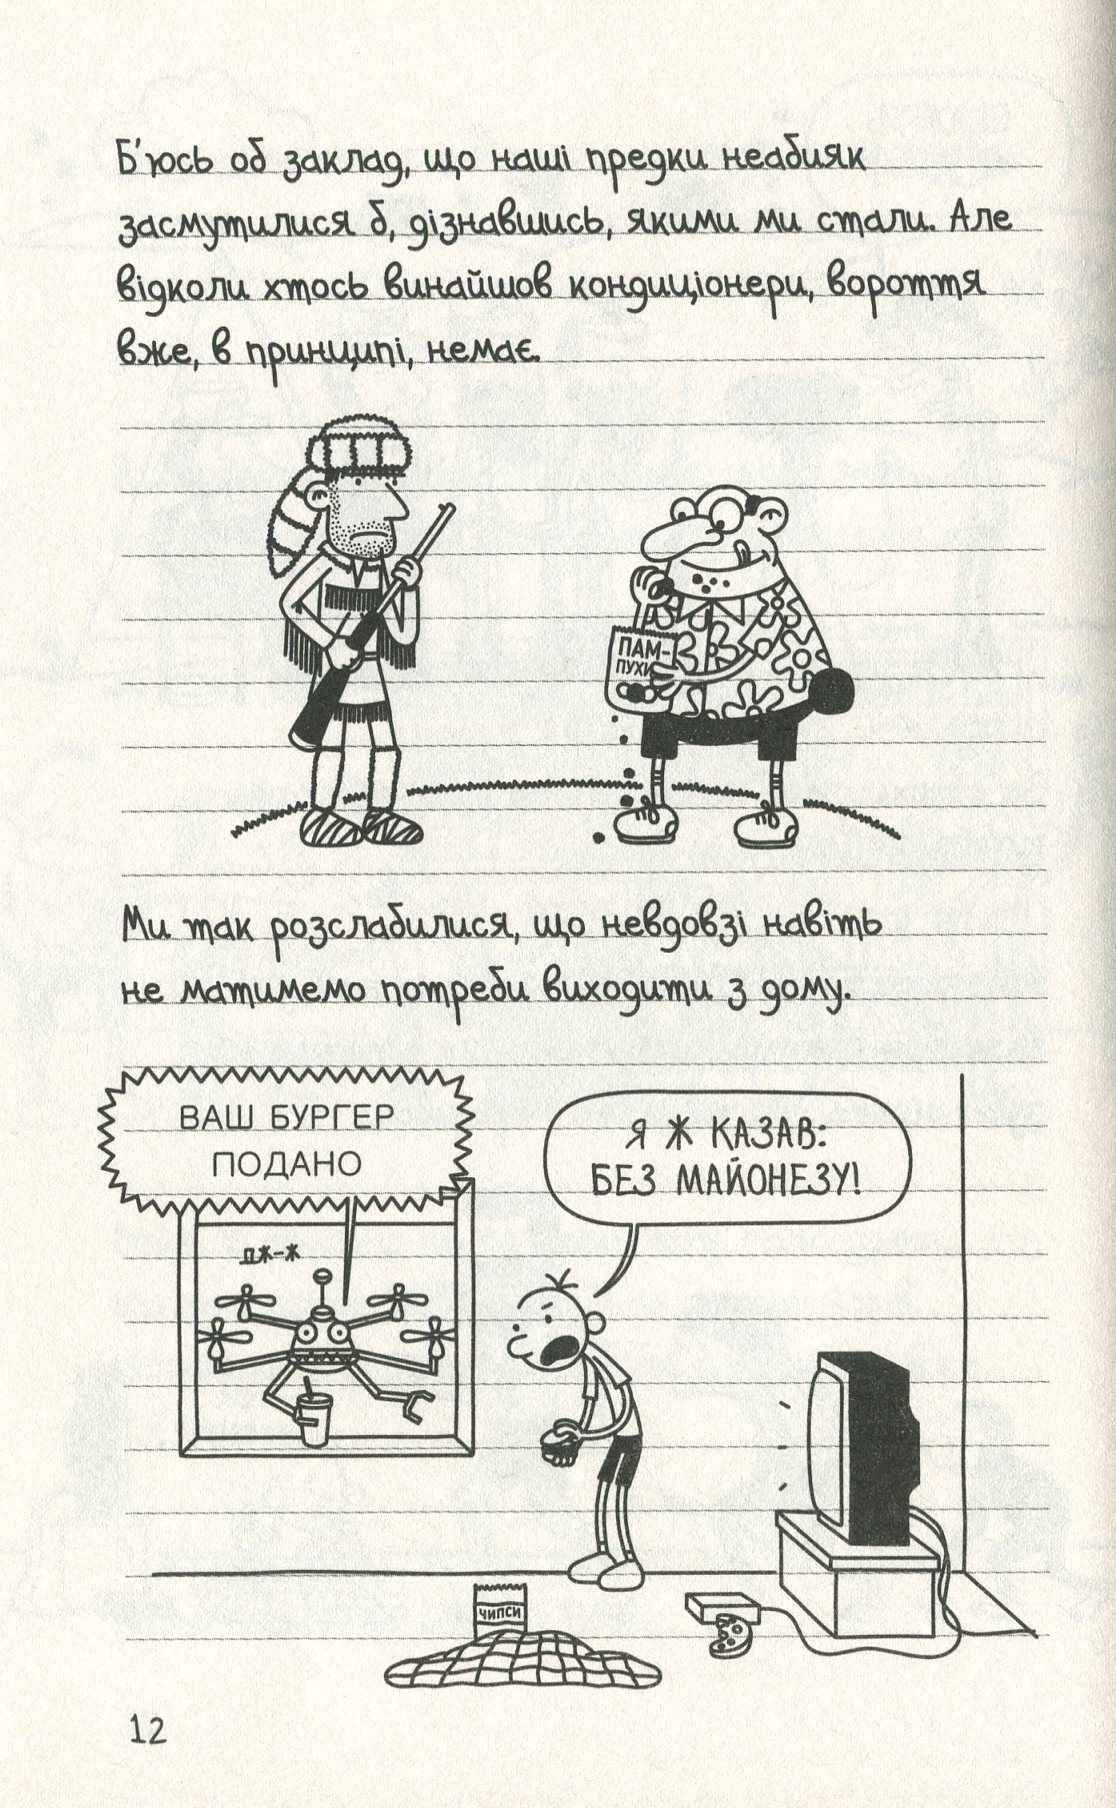 Б'юсь об заклад, що наші предки неабияк
засмутилися б, дізнавшись, якими ми стали. Але
відколи хтось винайшов кондиціонери, вороття
вже, в принципі, немає.
ПАМ-
ПУХИ
Ми так розслабилися, що невдовзі навіть
не матимемо потреби виходити з дому.
ВАШ БУРГЕР
ПОДАНО
Я Ж КАЗАВ:
БЕЗ МАЙОНЕЗУ!
ДЖ-Ж
ЧИПСИ
12